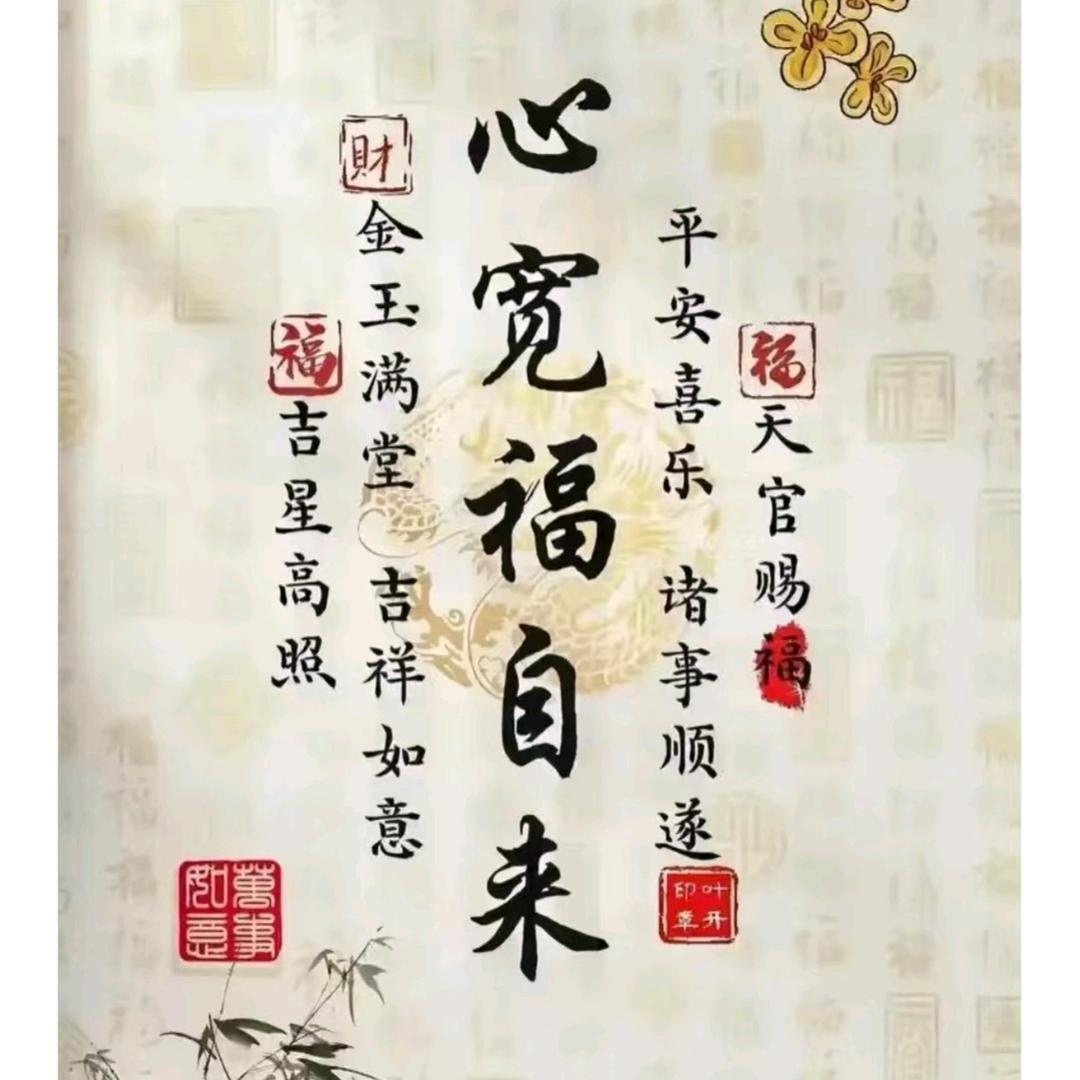 福
天官赐福
平安喜乐 诸事顺遂
叶开印章
心宽福自来
財
金玉满堂 吉祥如意
福
吉星高照
萬事如意